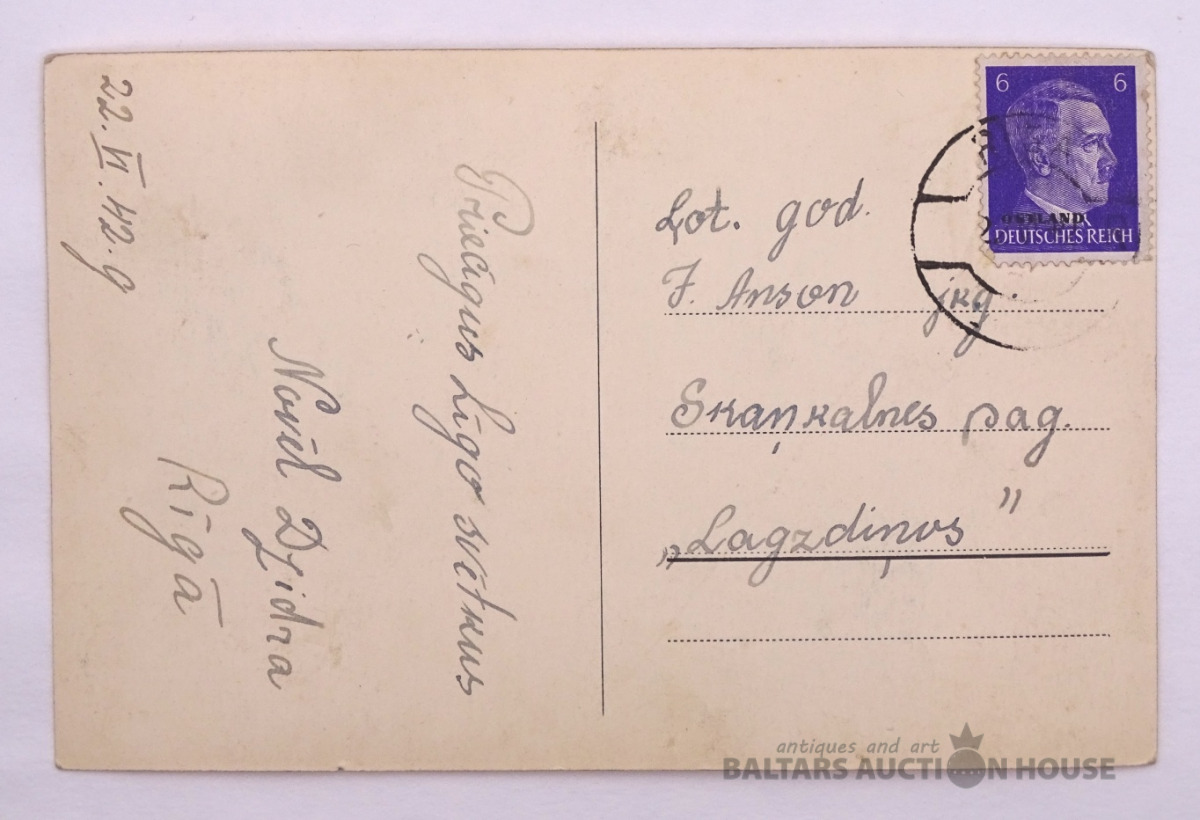 22. VI. 42. g
Priecīgus Līgo svētkus
Novēl Dzidra
Rīgā
Ļot. god.
J. Anson jkg
Skaņkalnes pag.
„Lagzdiņos"
6 6
OSTLAND
DEUTSCHES REICH
antiques and art
BALTARS AUCTION HOUSE